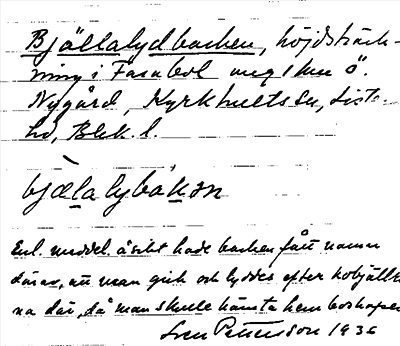 Bjällalydbacken, höjdsträck-
ning i Farabol ung 1 km ö.
Nygård, Kyrkhults sn, Liste-
hd, Blek. l.
bjælalybákən
Enl. meddel. åsikt hade backen fått namn
därav, att man gick och lyddes efter kobjällor-
na där, då man skulle hämta hem boskapen
Sven Petersson 1936